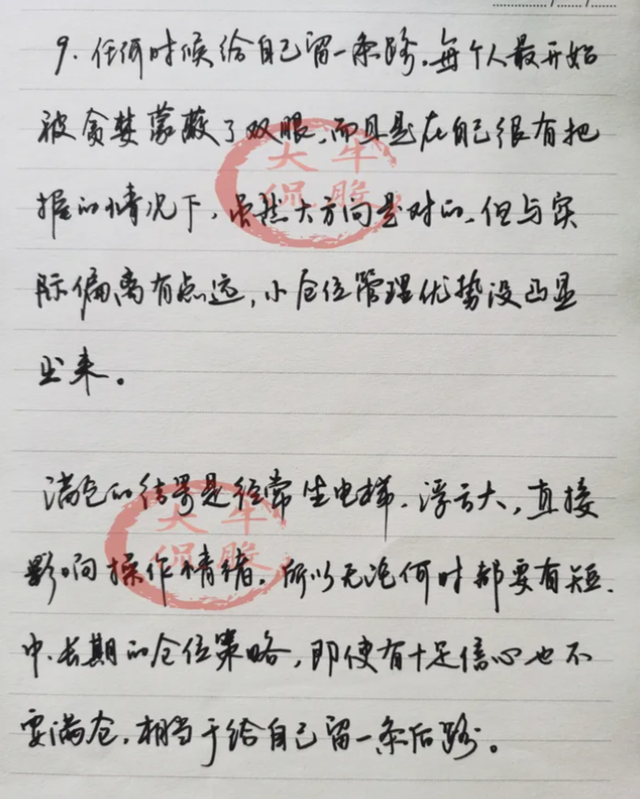 9. 任何时候给自己留一条路。每个人最开始
被贪婪蒙蔽了双眼，而且是在自己很有把
握的情况下，虽然大方向是对的，但与实
际偏离有点远，小仓位管理优势没凸显
出来。
满仓的结果是经常坐电梯，浮亏大，直接
影响操作情绪，所以无论何时都要有短、
中、长期的仓位策略，即使有十足信心也不
要满仓，相当于给自己留一条后路。
大牛
侃股
大牛
侃股